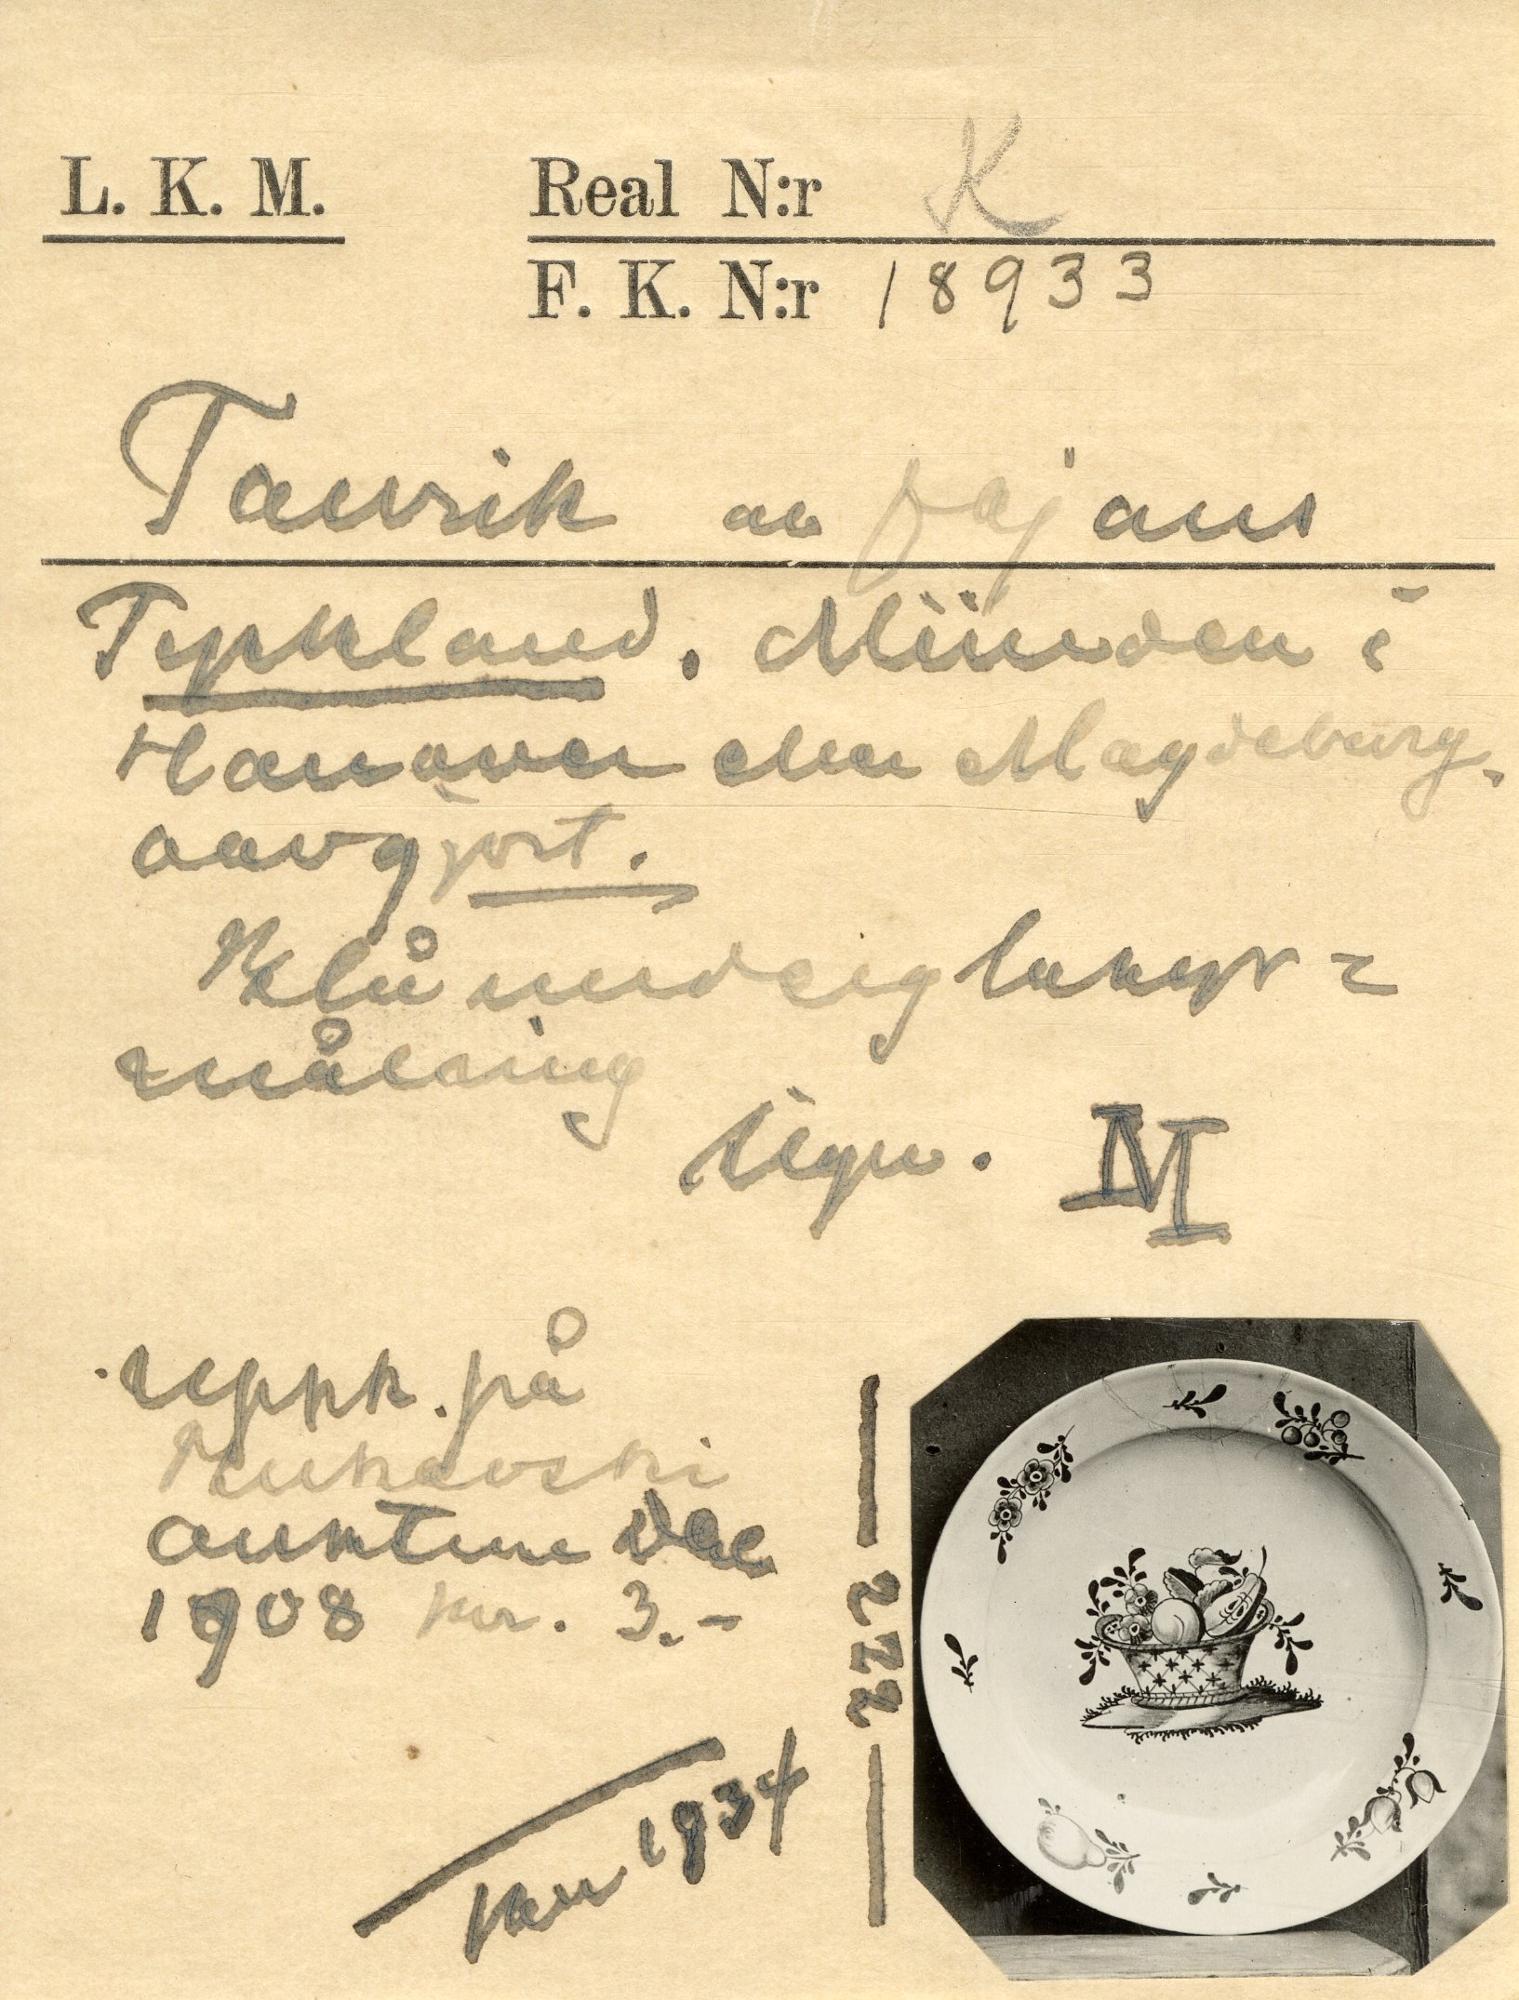 L. K. M.
Real N:r K
F. K. N:r 18933
Tallrik av fajans
Tyskland. Münden i
Hanover eller Magdeburg.
oavgjort.
Blå underglasyr=
målning
Sign. M
uppk. på
auktion
1908 kr. 3.-
1934
222